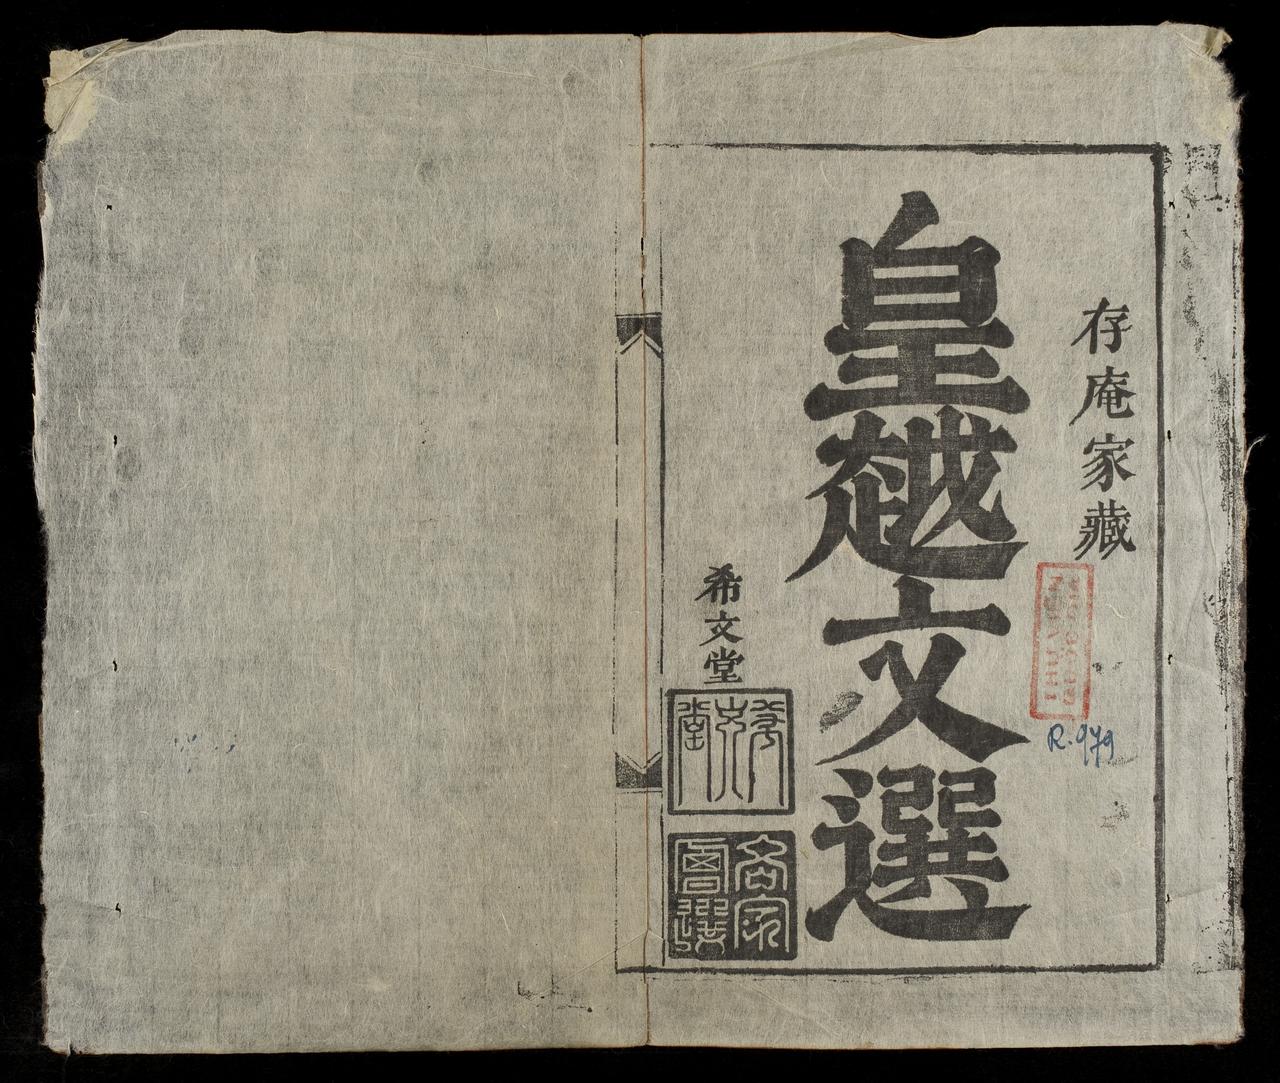 存庵家藏
皇越文選
R.979
希文堂